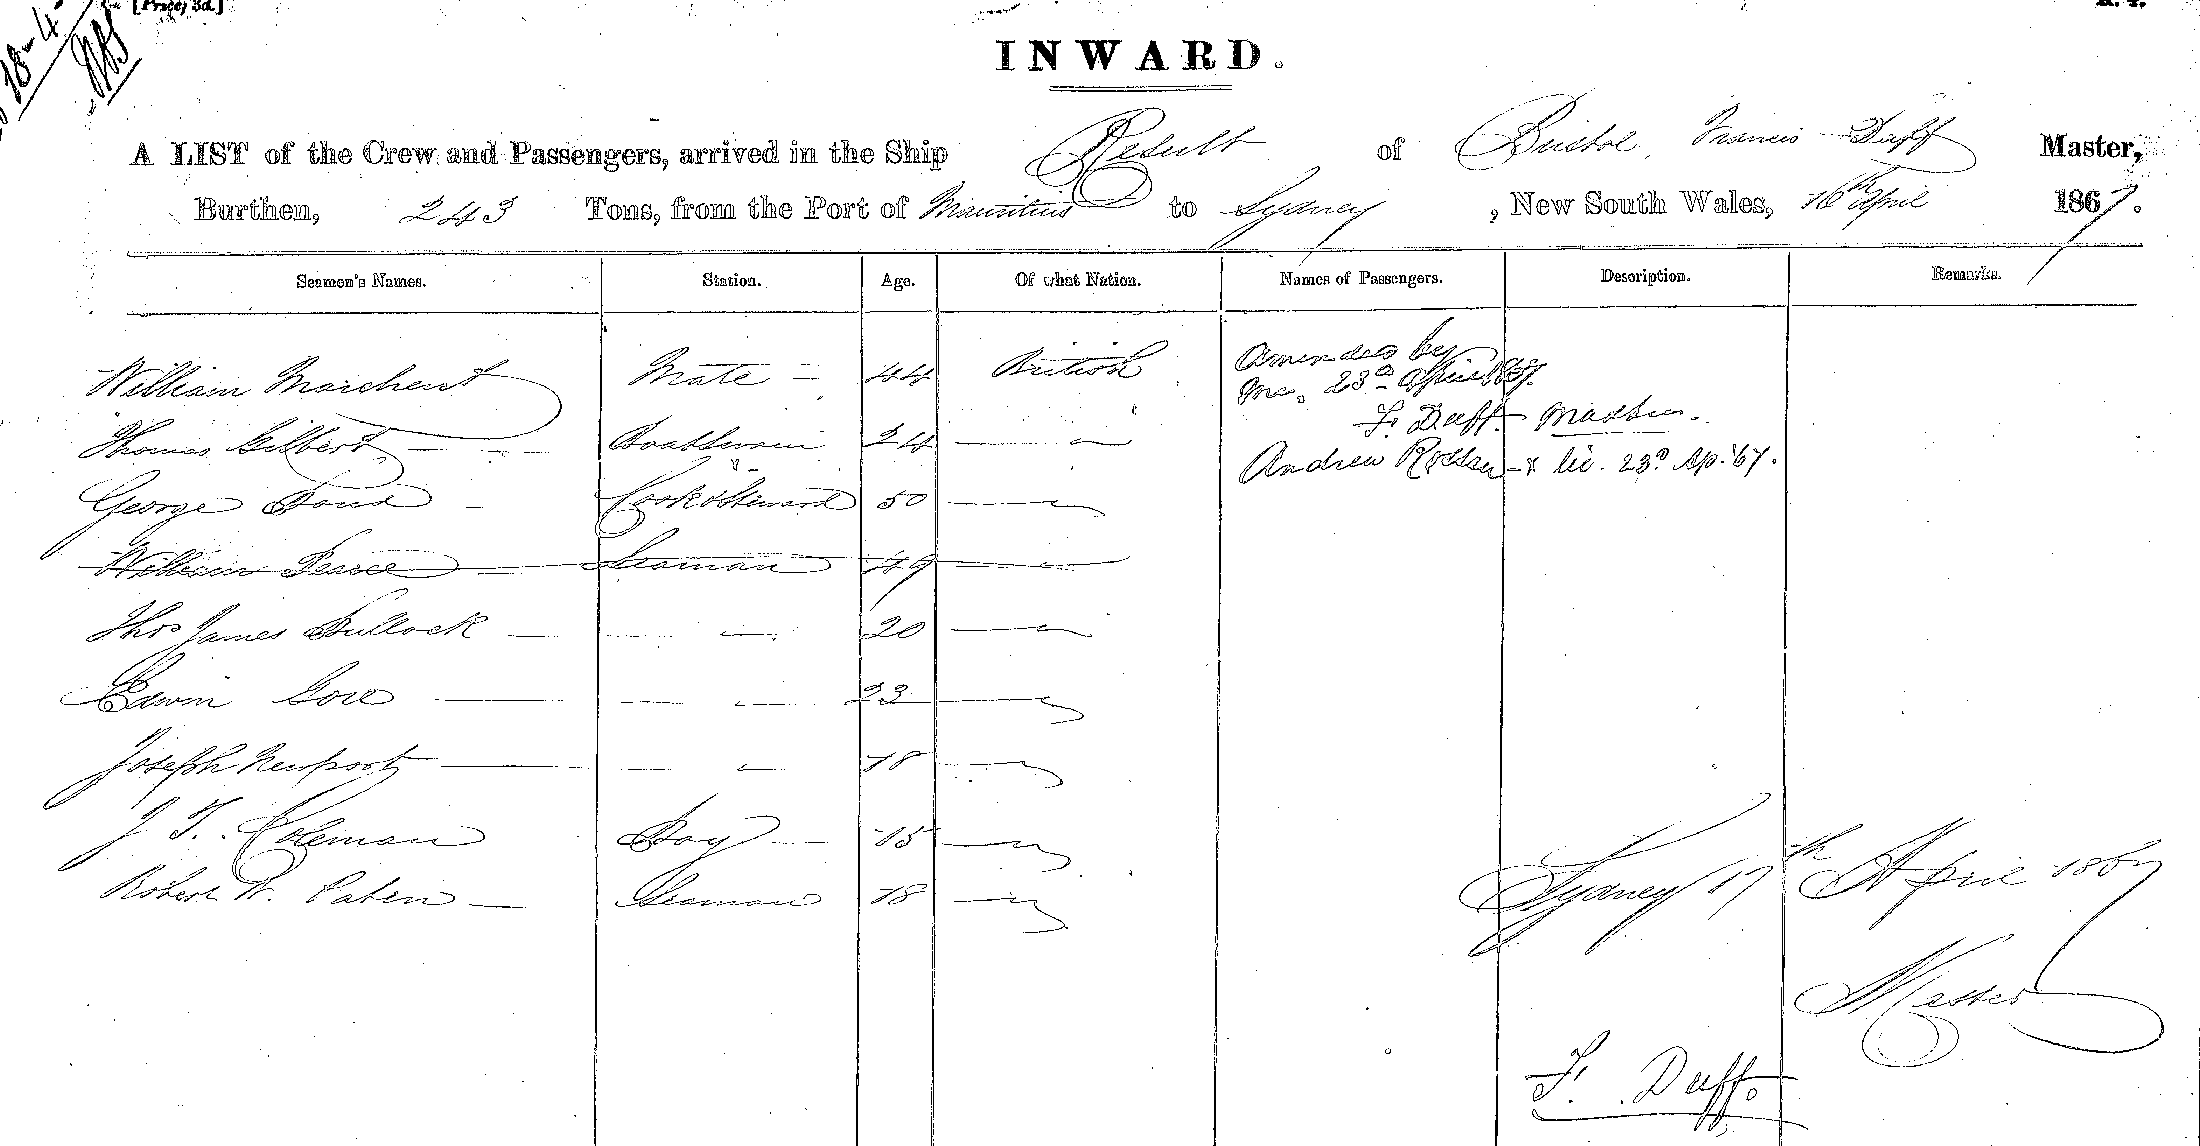 [Price, 3d.]
18-4
INWARD.
A LIST of the Crew and Passengers, arrived in the Ship Result of Bristol, Francis Duff Master,
Burthen, 243 Tons, from the Port of Mauritius to Sydney, New South Wales, 16th April 1867.
Seamen's Names. Station. Age. Of what Nation. Names of Passengers. Description. Remarks.
William Marchent Mate — 44 British
Amended by
me, 23d April 1867.
F. Duff Master.
Thomas Gilbert — Boatswain 24 — " —
Andrew — lic. 23d Ap. '67.
George Bond — Cook & Steward 50 —
William Pearce — Seaman 49 — " —
Thos James Bullock — — " — 20 — " —
Edwin Gore — — " — 23 —
Joseph Newport — — " — 18 —
J T. Coleman Boy — 15 —
Robert W. Paten — Seaman 18 —
Sydney 17th April 1867
Master
F. Duff.